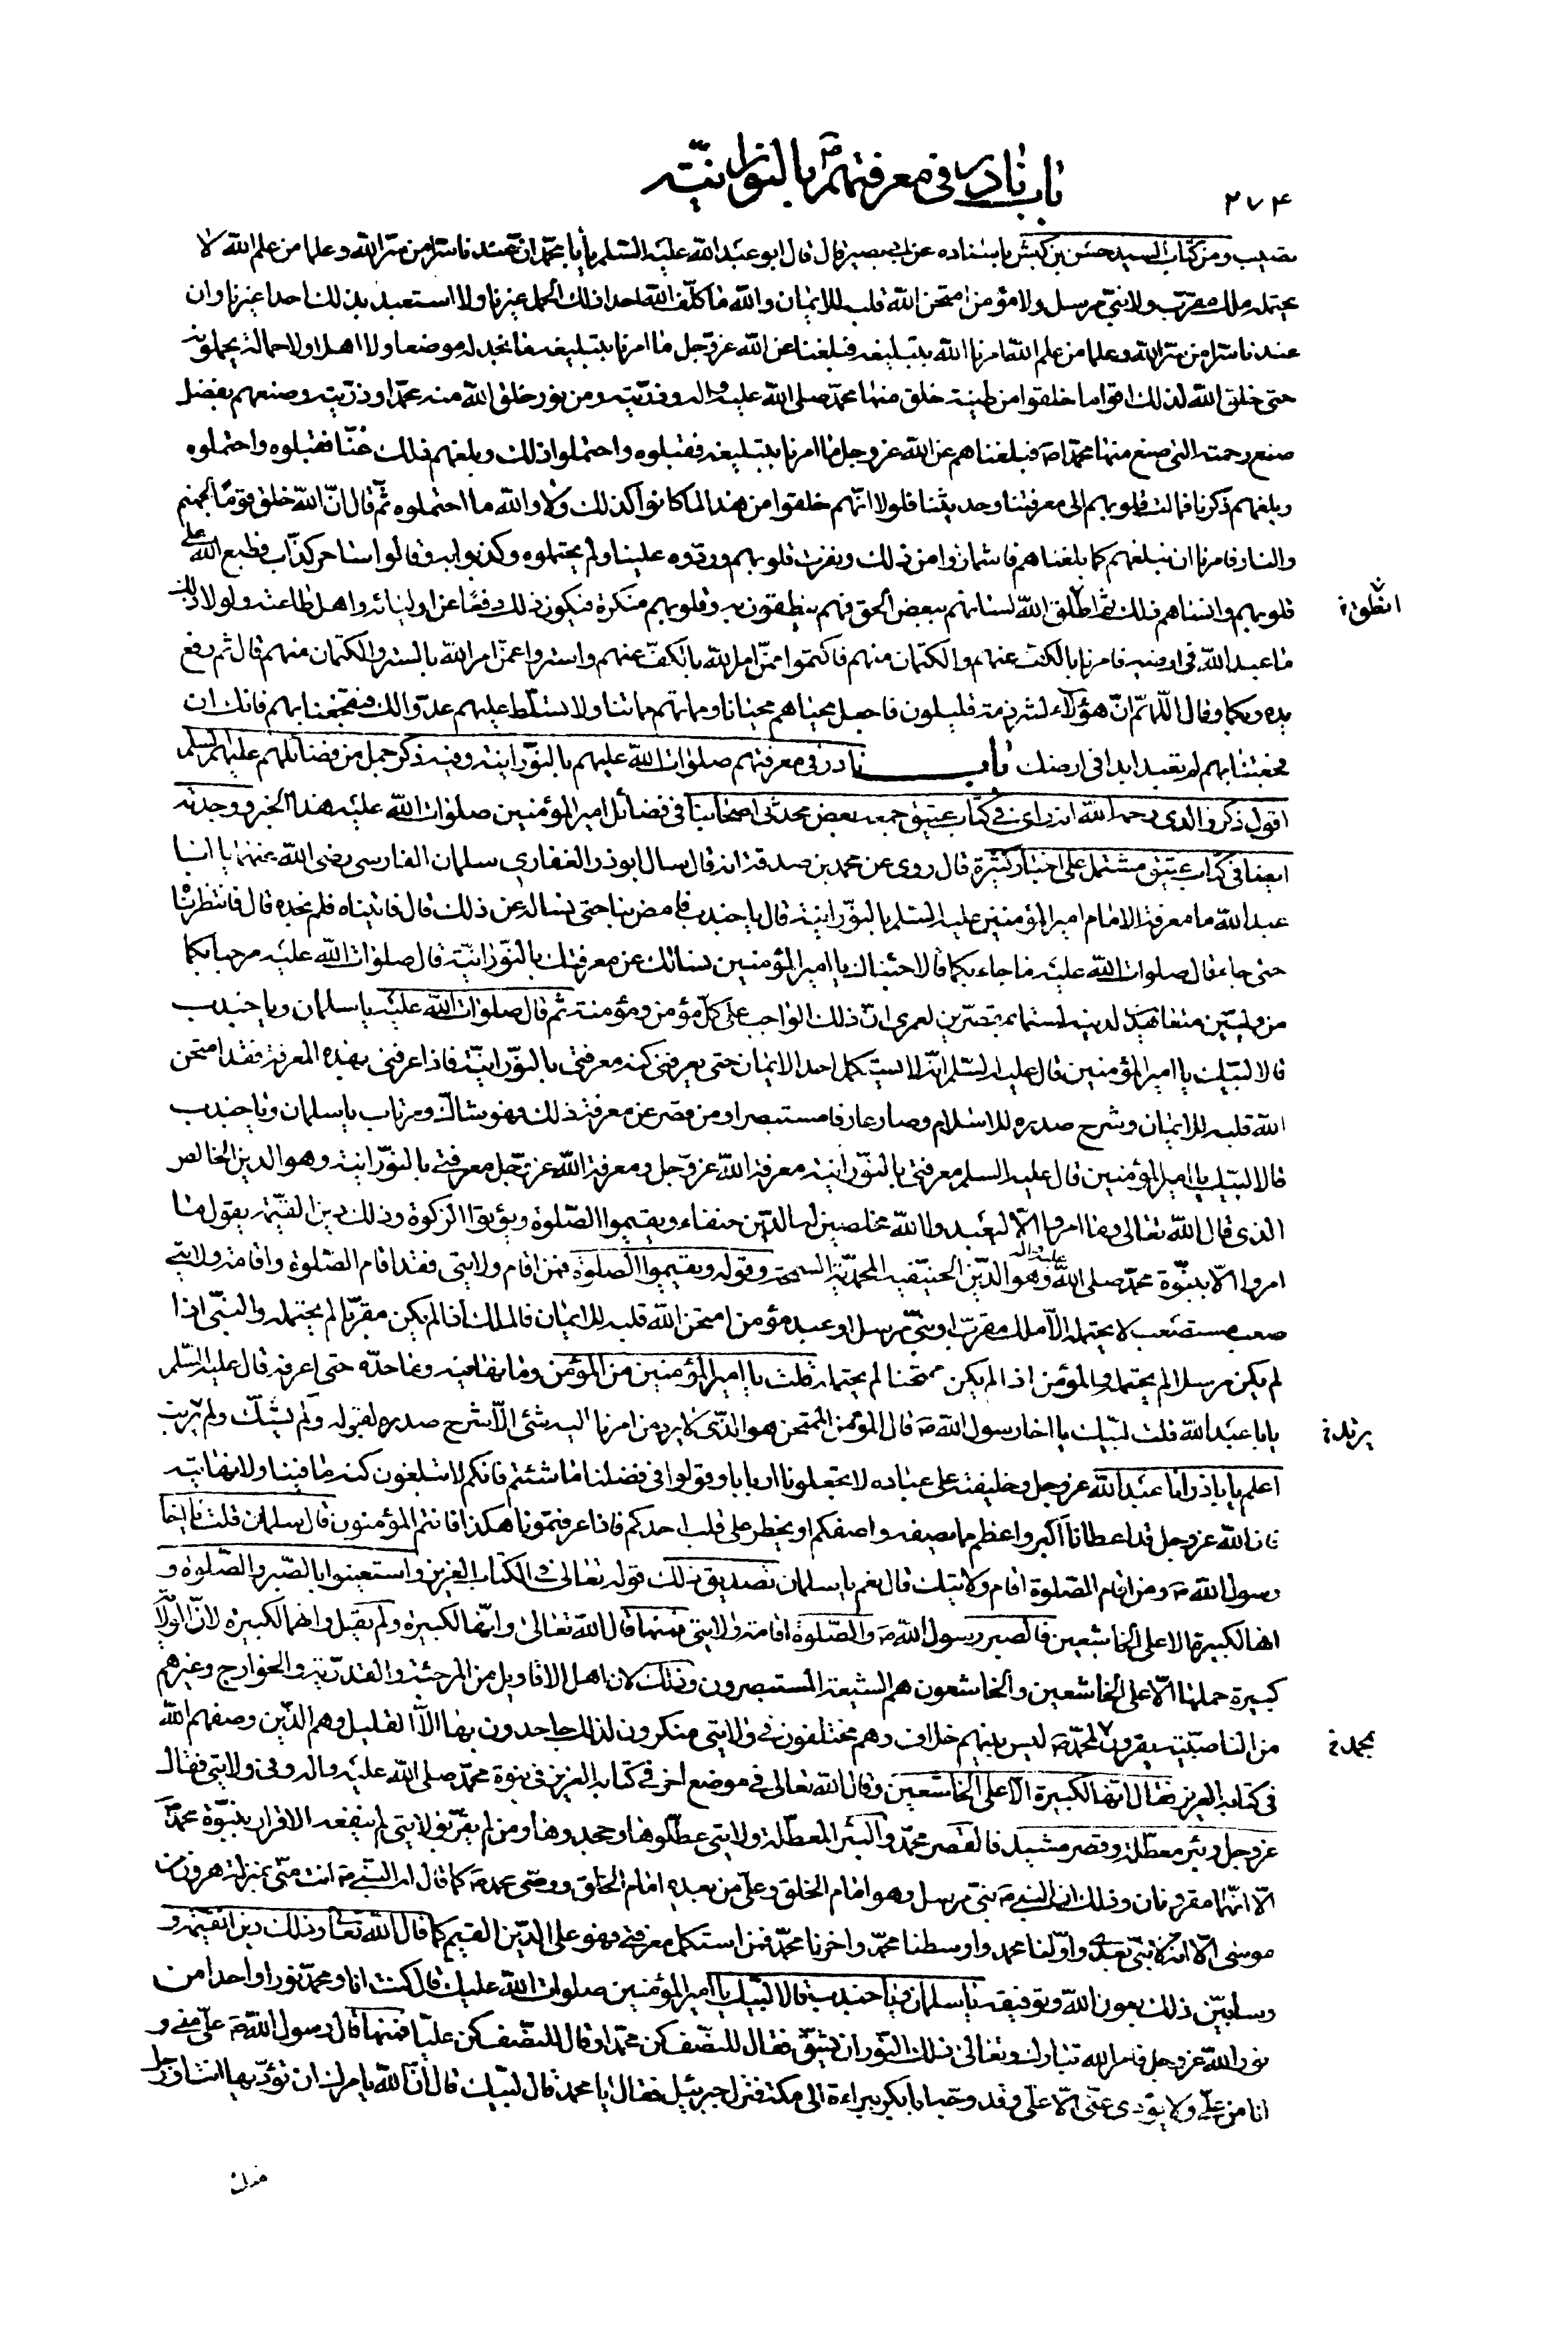 باب نادر في معرفتهم بالنورانية
۲۷۴
نصيب ومن كتاب السيد حسن بن كبش باسناده عن ابى بصير قال قال ابو عبد الله عليه السلم يا أبا محمد ان عندنا سرا من سر الله وعلما من علم الله لا
يحتمله ملك مقرب ولا نبي مرسل ولا مؤمن امتحن الله قلبه للايمان والله ما كلف الله احدا ذلك الحمل غيرنا ولا استعبد بذلك احدا غيرنا وان
عندنا سرا من سر الله وعلما من علم الله امرنا الله بتبليغه فبلغنا عن الله عز وجل ما امرنا بتبليغه فما نجد له موضعا ولا اهلا ولا حمالة يحملونه
حتى خلق الله لذلك اقواما خلقوا من طينة خلق منها محمد صلى الله عليه واله وذريته ومن نور خلق الله منه محمدا وذريته وصنعهم بفضل
صنع رحمته التي صنع منها محمدا ص فبلغناهم عن الله عز وجل ما امرنا بتبليغه فقبلوه واحتملوا ذلك وبلغهم ذلك عنا فقبلوه واحتملوه
وبلغهم ذكرنا فمالت قلوبهم الى معرفتنا وحديثنا فلولا انهم خلقوا من هذا لما كانوا كذلك ولا والله ما احتملوه ثم قال ان الله خلق قوما لجهنم
والنار فامرنا ان نبلغهم كما بلغناهم فاشمازوا من ذلك ونفرت قلوبهم وردوه علينا ولم يحتملوه وكذبوا به وقالوا ساحر كذاب فطبع الله على
قلوبهم وانساهم ذلك ثم اطلق الله لسانهم ببعض الحق فهم ينطقون به وقلوبهم منكرة فيكون ذلك دفعا عن اوليائه واهل طاعته ولولا ذلك
ما عبد الله في ارضه فامرنا بالكف عنهم والكتمان منهم فاكتموا ممن امر الله بالكف عنهم واستروا عمن امر الله بالستر والكتمان منهم قال ثم رفع
يده وبكا وقال اللهم ان هؤلاء لشرذمة قليلون فاجعل محياهم محيانا ومماتهم مماتنا ولا تسلط عليهم عدوا لك فتفجعنا بهم فانك ان
فجعتنا بهم لم تعبد ابدا في ارضك باب نادر في معرفتهم صلوات الله عليهم بالنورانية وفيه ذكر جمل من فضائلهم عليهم السلم
اقول ذكر والدي رحمه الله انه راى في كتاب عتيق جمعه بعض محدثي اصحابنا في فضائل امير المؤمنين صلوات الله عليه هذا الخبر ووجدته
ايضا في كتاب عتيق مشتمل على اخبار كثيرة قال روى عن محمد بن صدقة انه قال سال ابو ذر الغفاري سلمان الفارسي رضي الله عنهما يا ابا
عبد الله ما معرفة الامام امير المؤمنين عليه السلم بالنورانية قال يا جندب فامض بنا حتى نساله عن ذلك قال فاتيناه فلم نجده قال فانتظرناه
حتى جاء قال صلوات الله عليه ما جاء بكما قالا جئناك يا امير المؤمنين نسالك عن معرفتك بالنورانية قال صلوات الله عليه مرحبا بكما
من وليين متعاهدين لدينه لستما بمقصرين لعمري ان ذلك الواجب على كل مؤمن ومؤمنة ثم قال صلوات الله عليه يا سلمان ويا جندب
قالا لبيك يا امير المؤمنين قال عليه السلم انه لا يستكمل احد الايمان حتى يعرفني كنه معرفتي بالنورانية فاذا عرفني بهذه المعرفة فقد امتحن
الله قلبه للايمان وشرح صدره للاسلام وصار عارفا مستبصرا ومن قصر عن معرفة ذلك فهو شاك ومرتاب يا سلمان ويا جندب
قالا لبيك يا امير المؤمنين قال عليه السلم معرفتي بالنورانية معرفة الله عز وجل ومعرفة الله عز وجل معرفتي بالنورانية وهو الدين الخالص
الذي قال الله تعالى وما امروا الا ليعبدوا الله مخلصين له الدين حنفاء ويقيموا الصلوة ويؤتوا الزكوة وذلك دين القيمة يقول ما
امروا الا بنبوة محمد صلى الله عليه واله وهو الدين الحنيفية المحمدية السمحة وقوله ويقيموا الصلوة فمن اقام ولايتي فقد اقام الصلوة واقامة ولايتي
صعب مستصعب لا يحتمله الا ملك مقرب او نبي مرسل او عبد مؤمن امتحن الله قلبه للايمان فالملك اذا لم يكن مقربا لم يحتمله والنبي اذا
لم يكن مرسلا لم يحتمله والمؤمن اذا لم يكن ممتحنا لم يحتمله قلت يا امير المؤمنين من المؤمن وما نهايته وما حده حتى اعرفه قال عليه السلم
يابا عبد الله قلت لبيك يا اخا رسول الله ص قال المؤمن الممتحن هو الذي لا يرد من امرنا اليه شئ الا شرح صدره لقبوله ولم يشك ولم يرتب
اعلم يابا ذر انا عبد الله عز وجل وخليفته على عباده لا تجعلونا اربابا وقولوا في فضلنا ما شئتم فانكم لا تبلغون كنه ما فينا ولا نهايته
فان الله عز وجل قد اعطانا اكبر واعظم مما يصفه واصفكم او يخطر على قلب احدكم فاذا عرفتمونا هكذا فانتم المؤمنون قال سلمان قلت يا اخا
رسول الله ص ومن اقام الصلوة اقام ولايتك قال نعم يا سلمان تصديق ذلك قوله تعالى في الكتاب العزيز واستعينوا بالصبر والصلوة و
انها لكبيرة الا على الخاشعين فالصبر رسول الله ص والصلوة اقامة ولايتي فمنها قال الله تعالى وانها لكبيرة ولم يقل وانهما لكبيرة لان الولاية
كبيرة حملها الا على الخاشعين والخاشعون هم الشيعة المستبصرون وذلك لان اهل الاقاويل من المرجئة والقدرية والخوارج وغيرهم
من الناصبية يقرون لمحمد ص ليس بينهم خلاف وهم مختلفون في ولايتي منكرون لذلك جاحدون بها الا القليل وهم الذين وصفهم الله
في كتابه العزيز فقال انها لكبيرة الا على الخاشعين وقال الله تعالى في موضع اخر في كتابه العزيز في نبوة محمد صلى الله عليه واله وفي ولايتي فقال
عز وجل وبئر معطلة وقصر مشيد فالقصر محمد والبئر المعطلة ولايتي عطلوها وجحدوها ومن لم يقر بولايتي لم ينفعه الاقرار بنبوة محمد ص
الا انهما مقرونان وذلك ان النبي ص نبي مرسل وهو امام الخلق وعلي من بعده امام الخلق ووصي محمد ص كما قال له النبي ص انت مني بمنزلة هرون من
موسى الا انه لا نبي بعدي واولنا محمد واوسطنا محمد واخرنا محمد فمن استكمل معرفتي فهو على الدين القيم كما قال الله تعالى وذلك دين القيمة و
وسابين ذلك بعون الله وتوفيقه يا سلمان ويا جندب قالا لبيك يا امير المؤمنين صلوات الله عليك قال كنت انا ومحمد نورا واحدا من
نور الله عز وجل فامر الله تبارك وتعالى ذلك النور ان يشق فقال للنصف كن محمدا وقال للنصف كن عليا فمنها قال رسول الله ص علي مني و
انا من علي ولا يؤدي عني الا علي وقد وجه ابا بكر ببراءة الى مكة فنزل جبرئيل فقال يا محمد قال لبيك قال ان الله يامرك ان تؤديها انت او رجل
يرتد خ
بمحمد خ